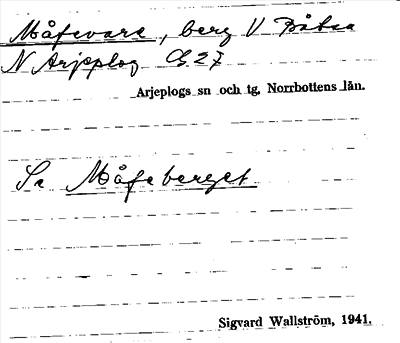 Måfevare, berg V Båtsa
N Arjeplog Cg 27
Arjeplogs sn och tg, Norrbottens län.
Se Måfeberget
Sigvard Wallström, 1941.